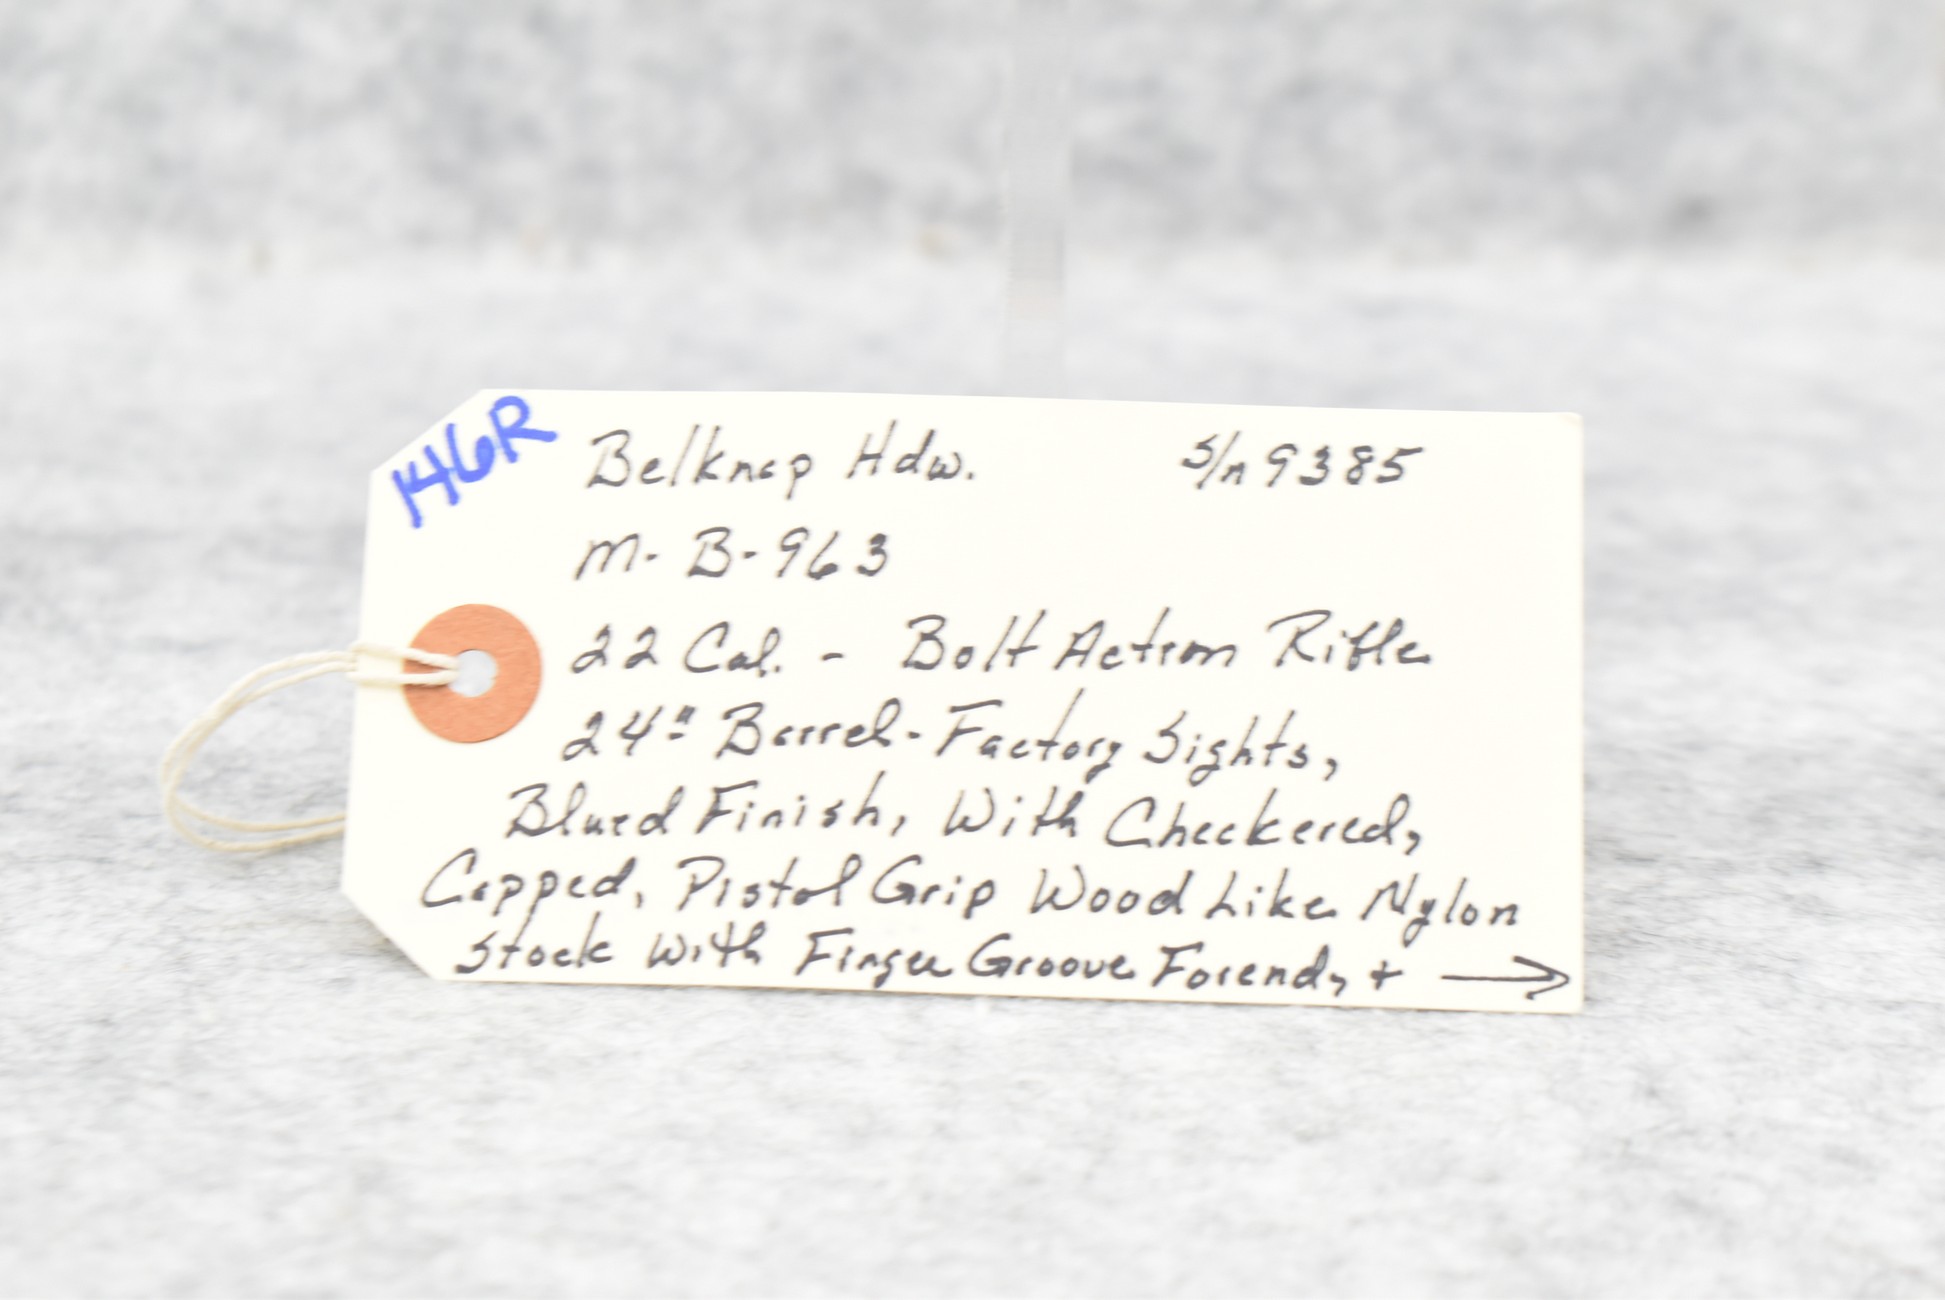 146R
Belknap Hdw. S/n 9385
M- B-963
22 Cal. - Bolt Action Rifle
24" Barrel - Factory Sights,
Blued Finish, With Checkered,
Capped, Pistol Grip Wood Like Nylon
Stock with Finger Groove Forend, + →